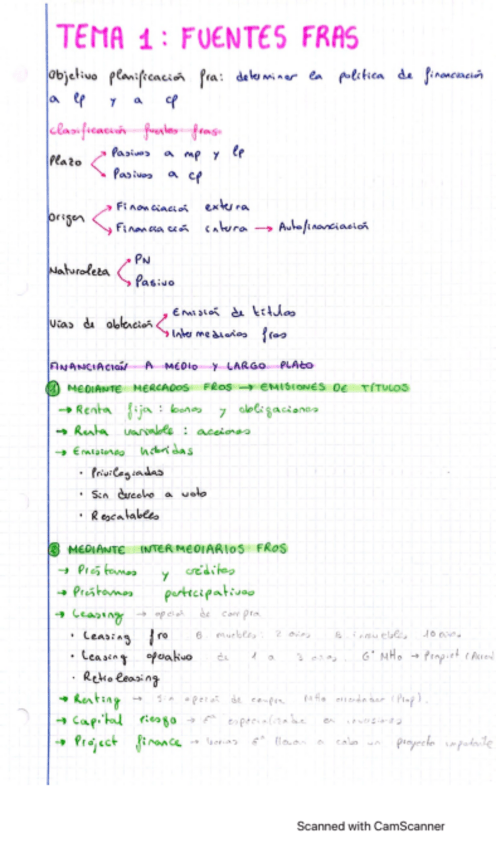 TEMA 1: FUENTES FRAS
Objetivo planificación fra: determinar la política de financiación
a lp y a cp
Clasificación fuentes fras:
Plazo
Pasivos a mp y lp
Pasivos a cp
Origen
Financiación externa
Financiación interna → Autofinanciación
Naturaleza
PN
Pasivo
Vías de obtención
Emisión de títulos
Intermediarios fros
FINANCIACIÓN A MEDIO Y LARGO PLAZO
1 MEDIANTE MERCADOS FROS → EMISIONES DE TÍTULOS
→ Renta fija: bonos y obligaciones
→ Renta variable: acciones
→ Emisiones híbridas
· Privilegiadas
· Sin derecho a voto
· Rescatables
2 MEDIANTE INTERMEDIARIOS FROS
→ Préstamos y créditos
→ Préstamos participativos
→ Leasing → opción de compra
· Leasing fro B. muebles: 2 años B. inmuebles 10 años
· Leasing operativo de 1 a 3 años. Gº Mto →
· Retroleasing
→ Renting → Sin opción de compra. Mto
→ Capital riesgo → en inversiones
→ Project finance → llevan a cabo un proyecto importante
Scanned with CamScanner